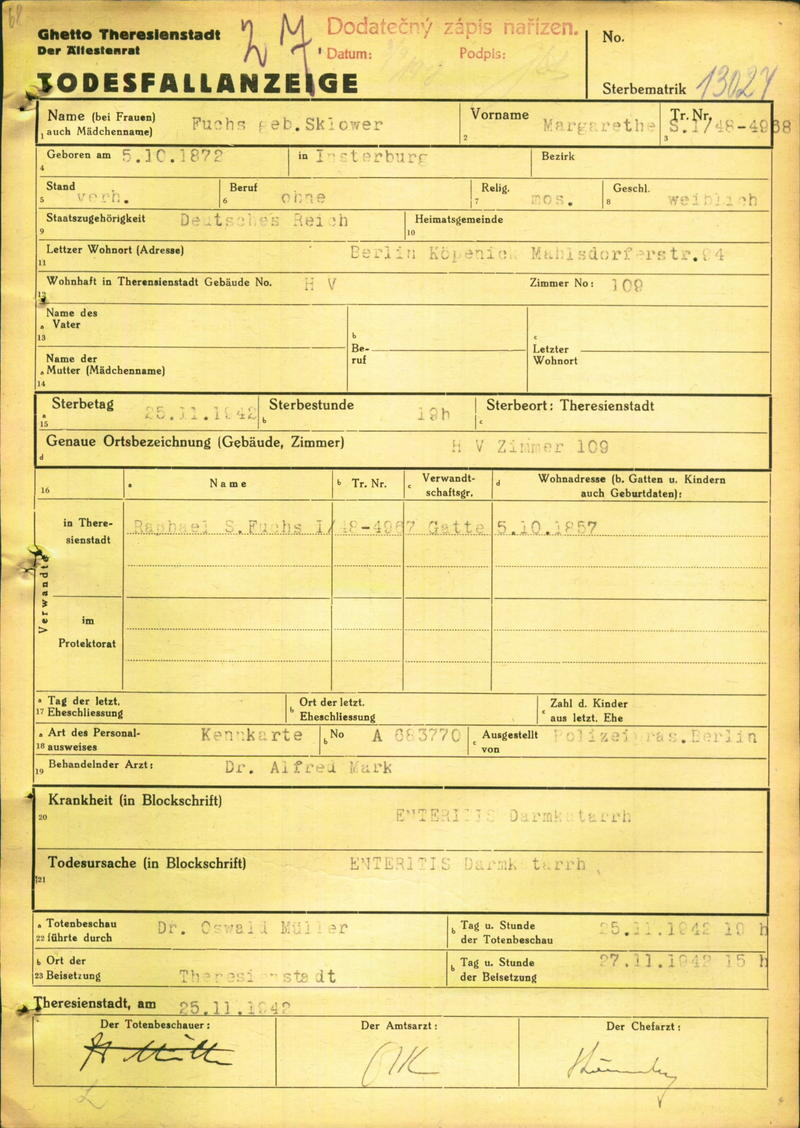 Ghetto Theresienstadt
Der Ältestenrat
TODESFALLANZEIGE
Dodatečný zápis nařízen.
Datum: Podpis:
No.
Sterbematrik 13024
Name (bei Frauen) Fuchs geb.Sklower
1 auch Mädchenname)
Vorname Margarethe
2
Tr. Nr.
3
Geboren am 5.10.1872
4
in Insterburg
Bezirk
Stand verh.
5
Beruf ohne
6
Relig. mos.
7
Geschl. weiblich
8
Staatszugehörigkeit Deutsches Reich
9
Heimatsgemeinde
10
Lettzer Wohnort (Adresse) Berlin Köpenick Mahlsdorferstr.
11
Wohnhaft in Therensienstadt Gebäude No. H V
Zimmer No: 109
12
Name des
a Vater
13
b
Be-
ruf
c
Letzter
Wohnort
Name der
a Mutter (Mädchenname)
14
Sterbetag 25.11.1942
a
15
Sterbestunde 19h
b
Sterbeort: Theresienstadt
c
Genaue Ortsbezeichnung (Gebäude, Zimmer) H V Zimmer 109
d
16
a Name
b Tr. Nr.
c Verwandt-
schaftsgr.
d Wohnadresse (b. Gatten u. Kindern
auch Geburtdaten):
Verwandte
in There-
sienstadt
Raphael S.Fuchs I/48-4967 Gatte 5.10.1857
im
Protektorat
a Tag der letzt.
17 Eheschliessung
b Ort der letzt.
Eheschliessung
c Zahl d. Kinder
aus letzt. Ehe
a Art des Personal- Kennkarte
18 ausweises
b No A 683770
c Ausgestellt
von
19 Behandelnder Arzt: Dr. Alfred Mark
Krankheit (in Blockschrift) ENTERITIS Darmkatarrh
20
Todesursache (in Blockschrift) ENTERITIS Darmkatarrh
21
a Totenbeschau Dr. Oswald Müller
22 führte durch
b Tag u. Stunde 25.11.1942 19 h
der Totenbeschau
b Ort der
23 Beisetzung Theresienstadt
b Tag u. Stunde 27.11.1942 15 h
der Beisetzung
Theresienstadt, am 25.11.1942
Der Totenbeschauer:
Der Amtsarzt:
Der Chefarzt: